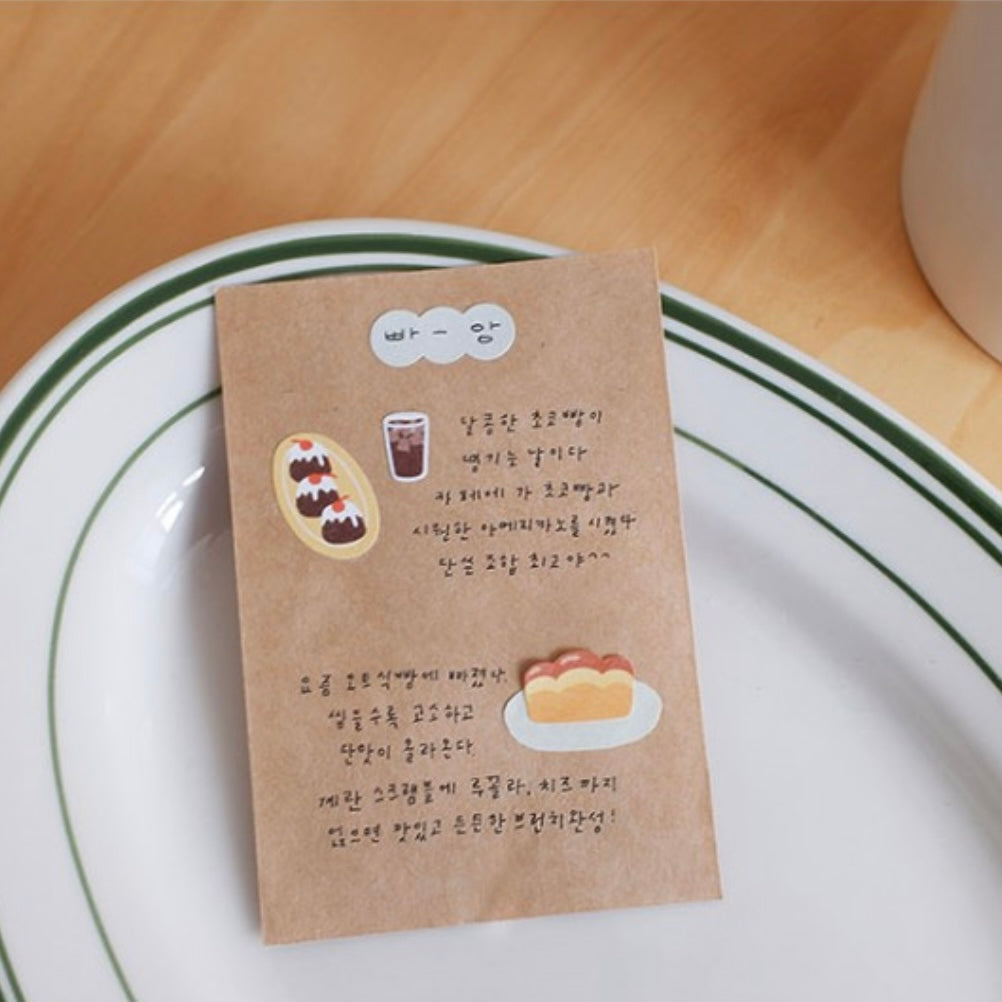 빠-앙
달콤한 초코빵이
땡기는 날이다
카페에 가 초코빵과
시원한 아메리카노를 시켰다
단쓴 조합 최고야^^
요즘 오트식빵에 빠졌다.
씹을수록 고소하고
단맛이 올라온다.
계란 스크램블에 루꼴라, 치즈까지
얹으면 맛있고 든든한 브런치완성!